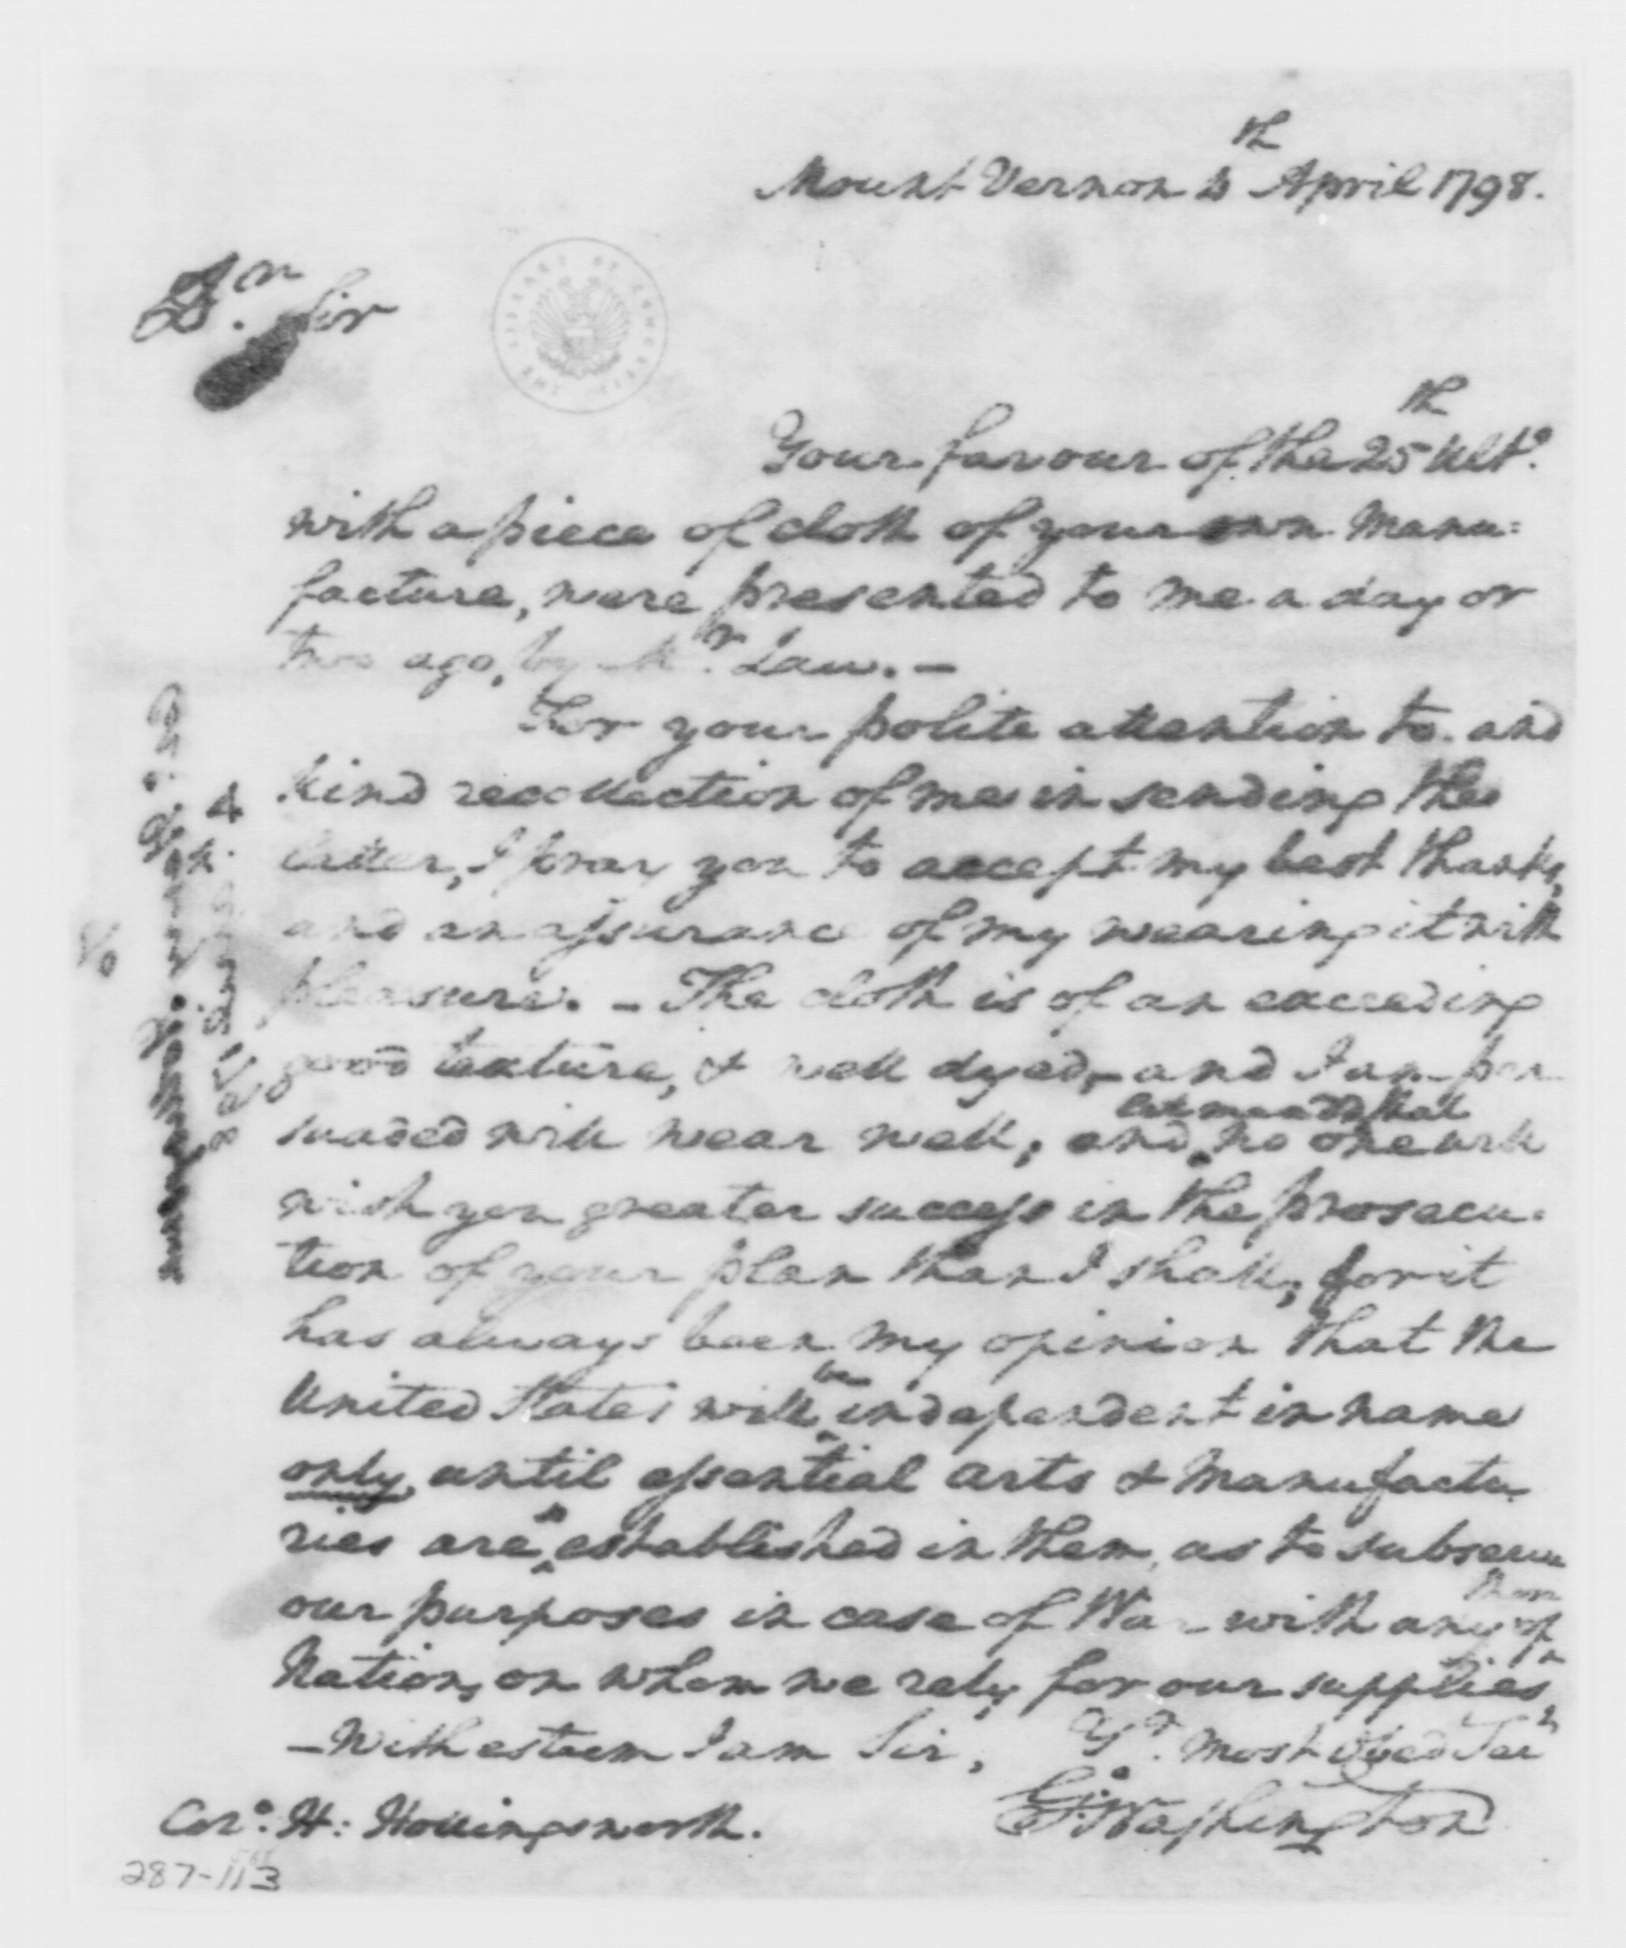 Mount Vernon 4th April 1798.
Dr. Sir
Your favour of the 25th Ulto.
with a piece of cloth of your own Manu:
facture, were presented to me a day or
two ago, by Mr. Law. —
For your polite attention to and
kind recollection of me in sending the
latter, I pray you to accept my best thanks,
and an assurance of my wearing it with
pleasure. — The cloth is of an exceeding
good texture, & well dyed, — and I am per
suaded will wear well; and let me add that no one will
wish you greater success in the prosecu-
tion of your plan than I shall; for it
has always been my opinion that the
United States will be independent in name
only, until essential arts & Manufactu
ries are so established in them, as to subserve
our purposes in case of War with any of them
Nations on whom we rely for our supplies,
— With esteem I am Sir, Yr. Most Obed Ser
Go: Washington
Colo. H: Hollingsworth.
287-113
THE LIBRARY OF CONGRESS
4 April 1798